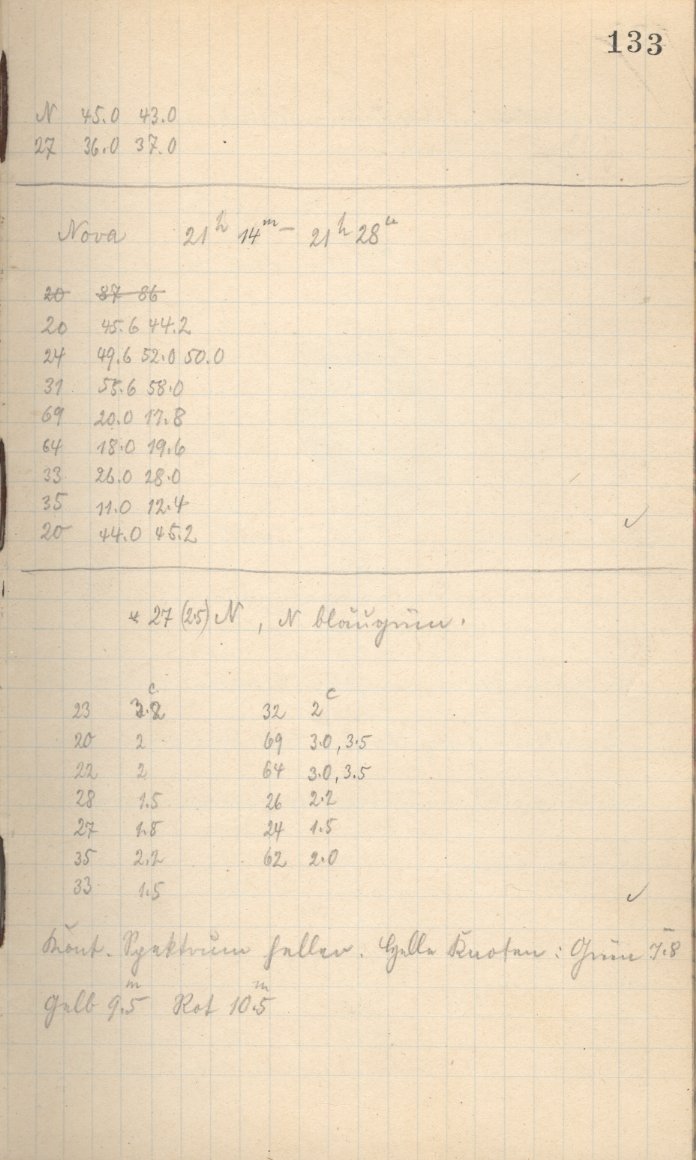 133
N 45.0 43.0
27 36.0 37.0
Nova 21h 14m – 21h 28m
20 87 86
20 45.6 44.2
24 49.6 52.0 50.0
31 58.6 58.0
69 20.0 17.8
64 18.0 19.6
33 26.0 28.0
35 11.0 12.4
20 44.0 45.2
* 27 (2.5) N, N bläugrün.
23 3.2c
20 2
22 2
28 1.5
27 1.8
35 2.2
33 1.5
32 2c
69 3.0, 3.5
64 3.0, 3.5
26 2.2
24 1.5
62 2.0
Kont. Spektrum heller. Helle Knoten: Grün 7.8
Gelb 9.5m Rot 10.5m